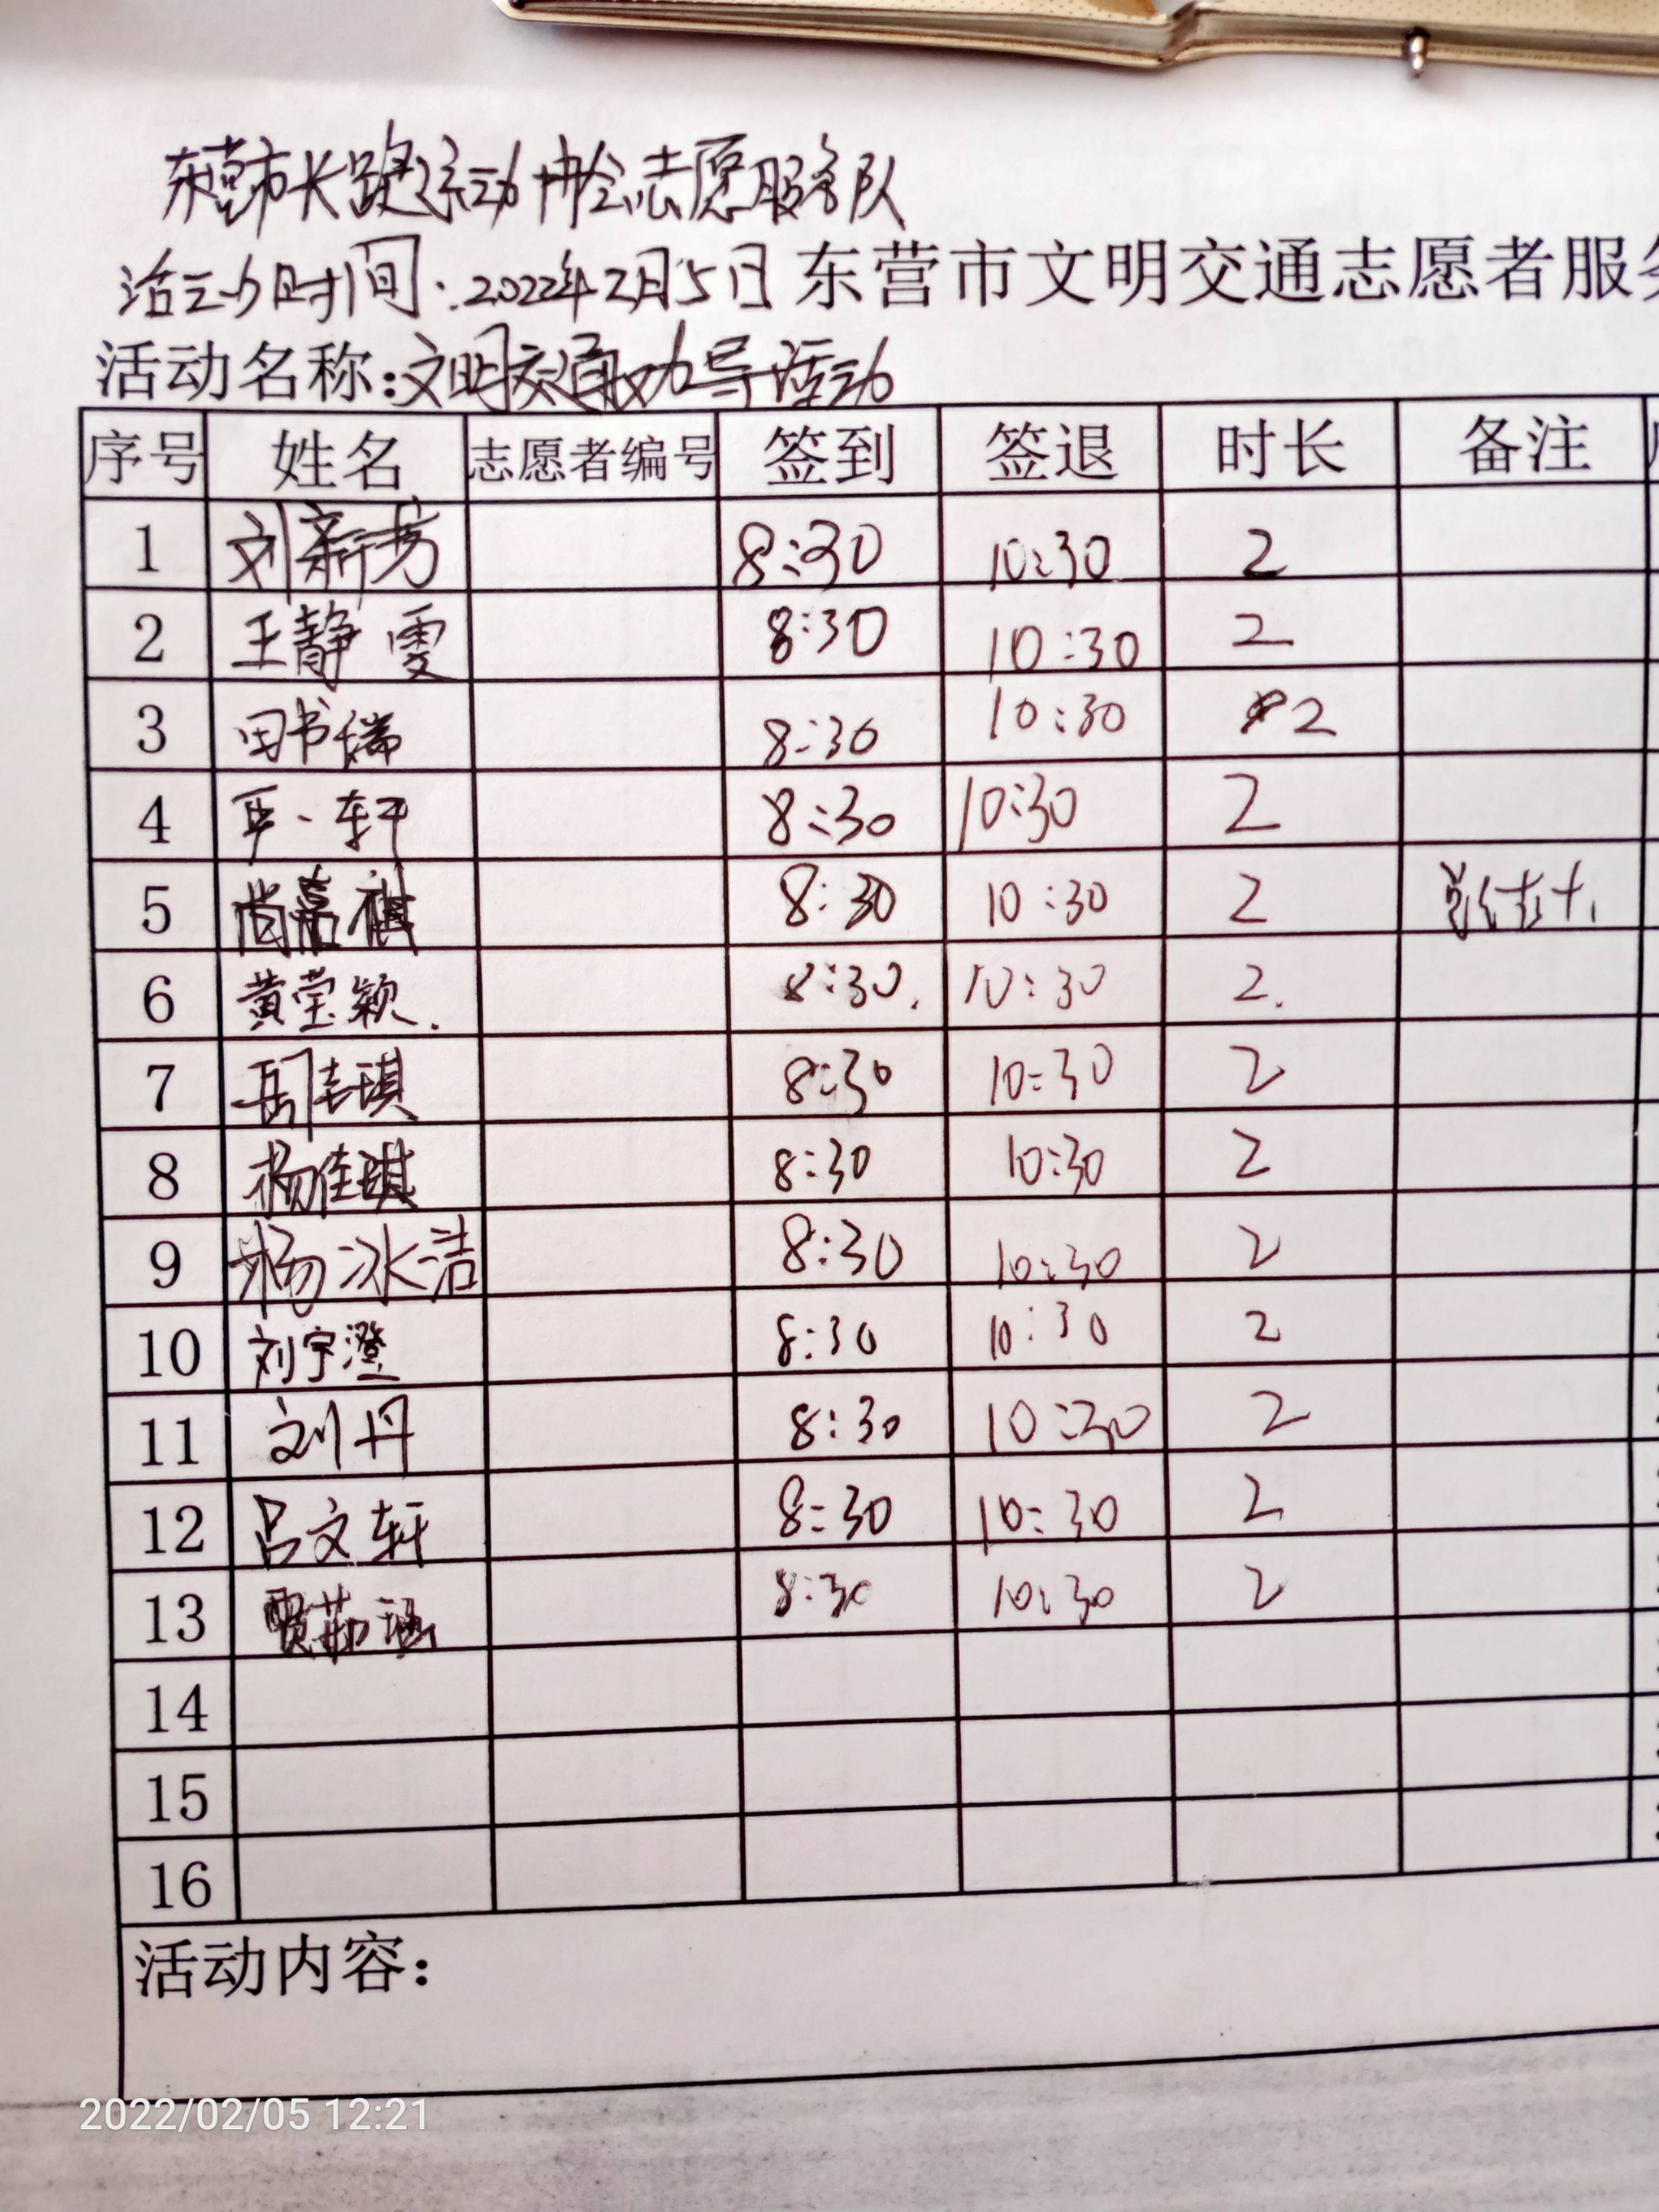 东营市长跑运动协会志愿服务队
活动时间:2022年2月5日 东营市文明交通志愿者服务
活动名称:文明交通劝导活动
序号 姓名 志愿者编号 签到 签退 时长 备注
1 刘新芳 8:30 10:30 2
2 王静雯 8:30 10:30 2
3 田书瑞 8:30 10:30 2
4 轩 8:30 10:30 2
5 尚嘉祺 8:30 10:30 2
6 黄莹颖. 8:30. 10:30 2.
7 岳琪 8:30 10:30 2
8 杨佳琪 8:30 10:30 2
9 杨冰洁 8:30 10:30 2
10 刘宇澄 8:30 10:30 2
11 刘丹 8:30 10:30 2
12 吕文轩 8:30 10:30 2
13 贾茹涵 8:30 10:30 2
14
15
16
活动内容:
2022/02/05 12:21